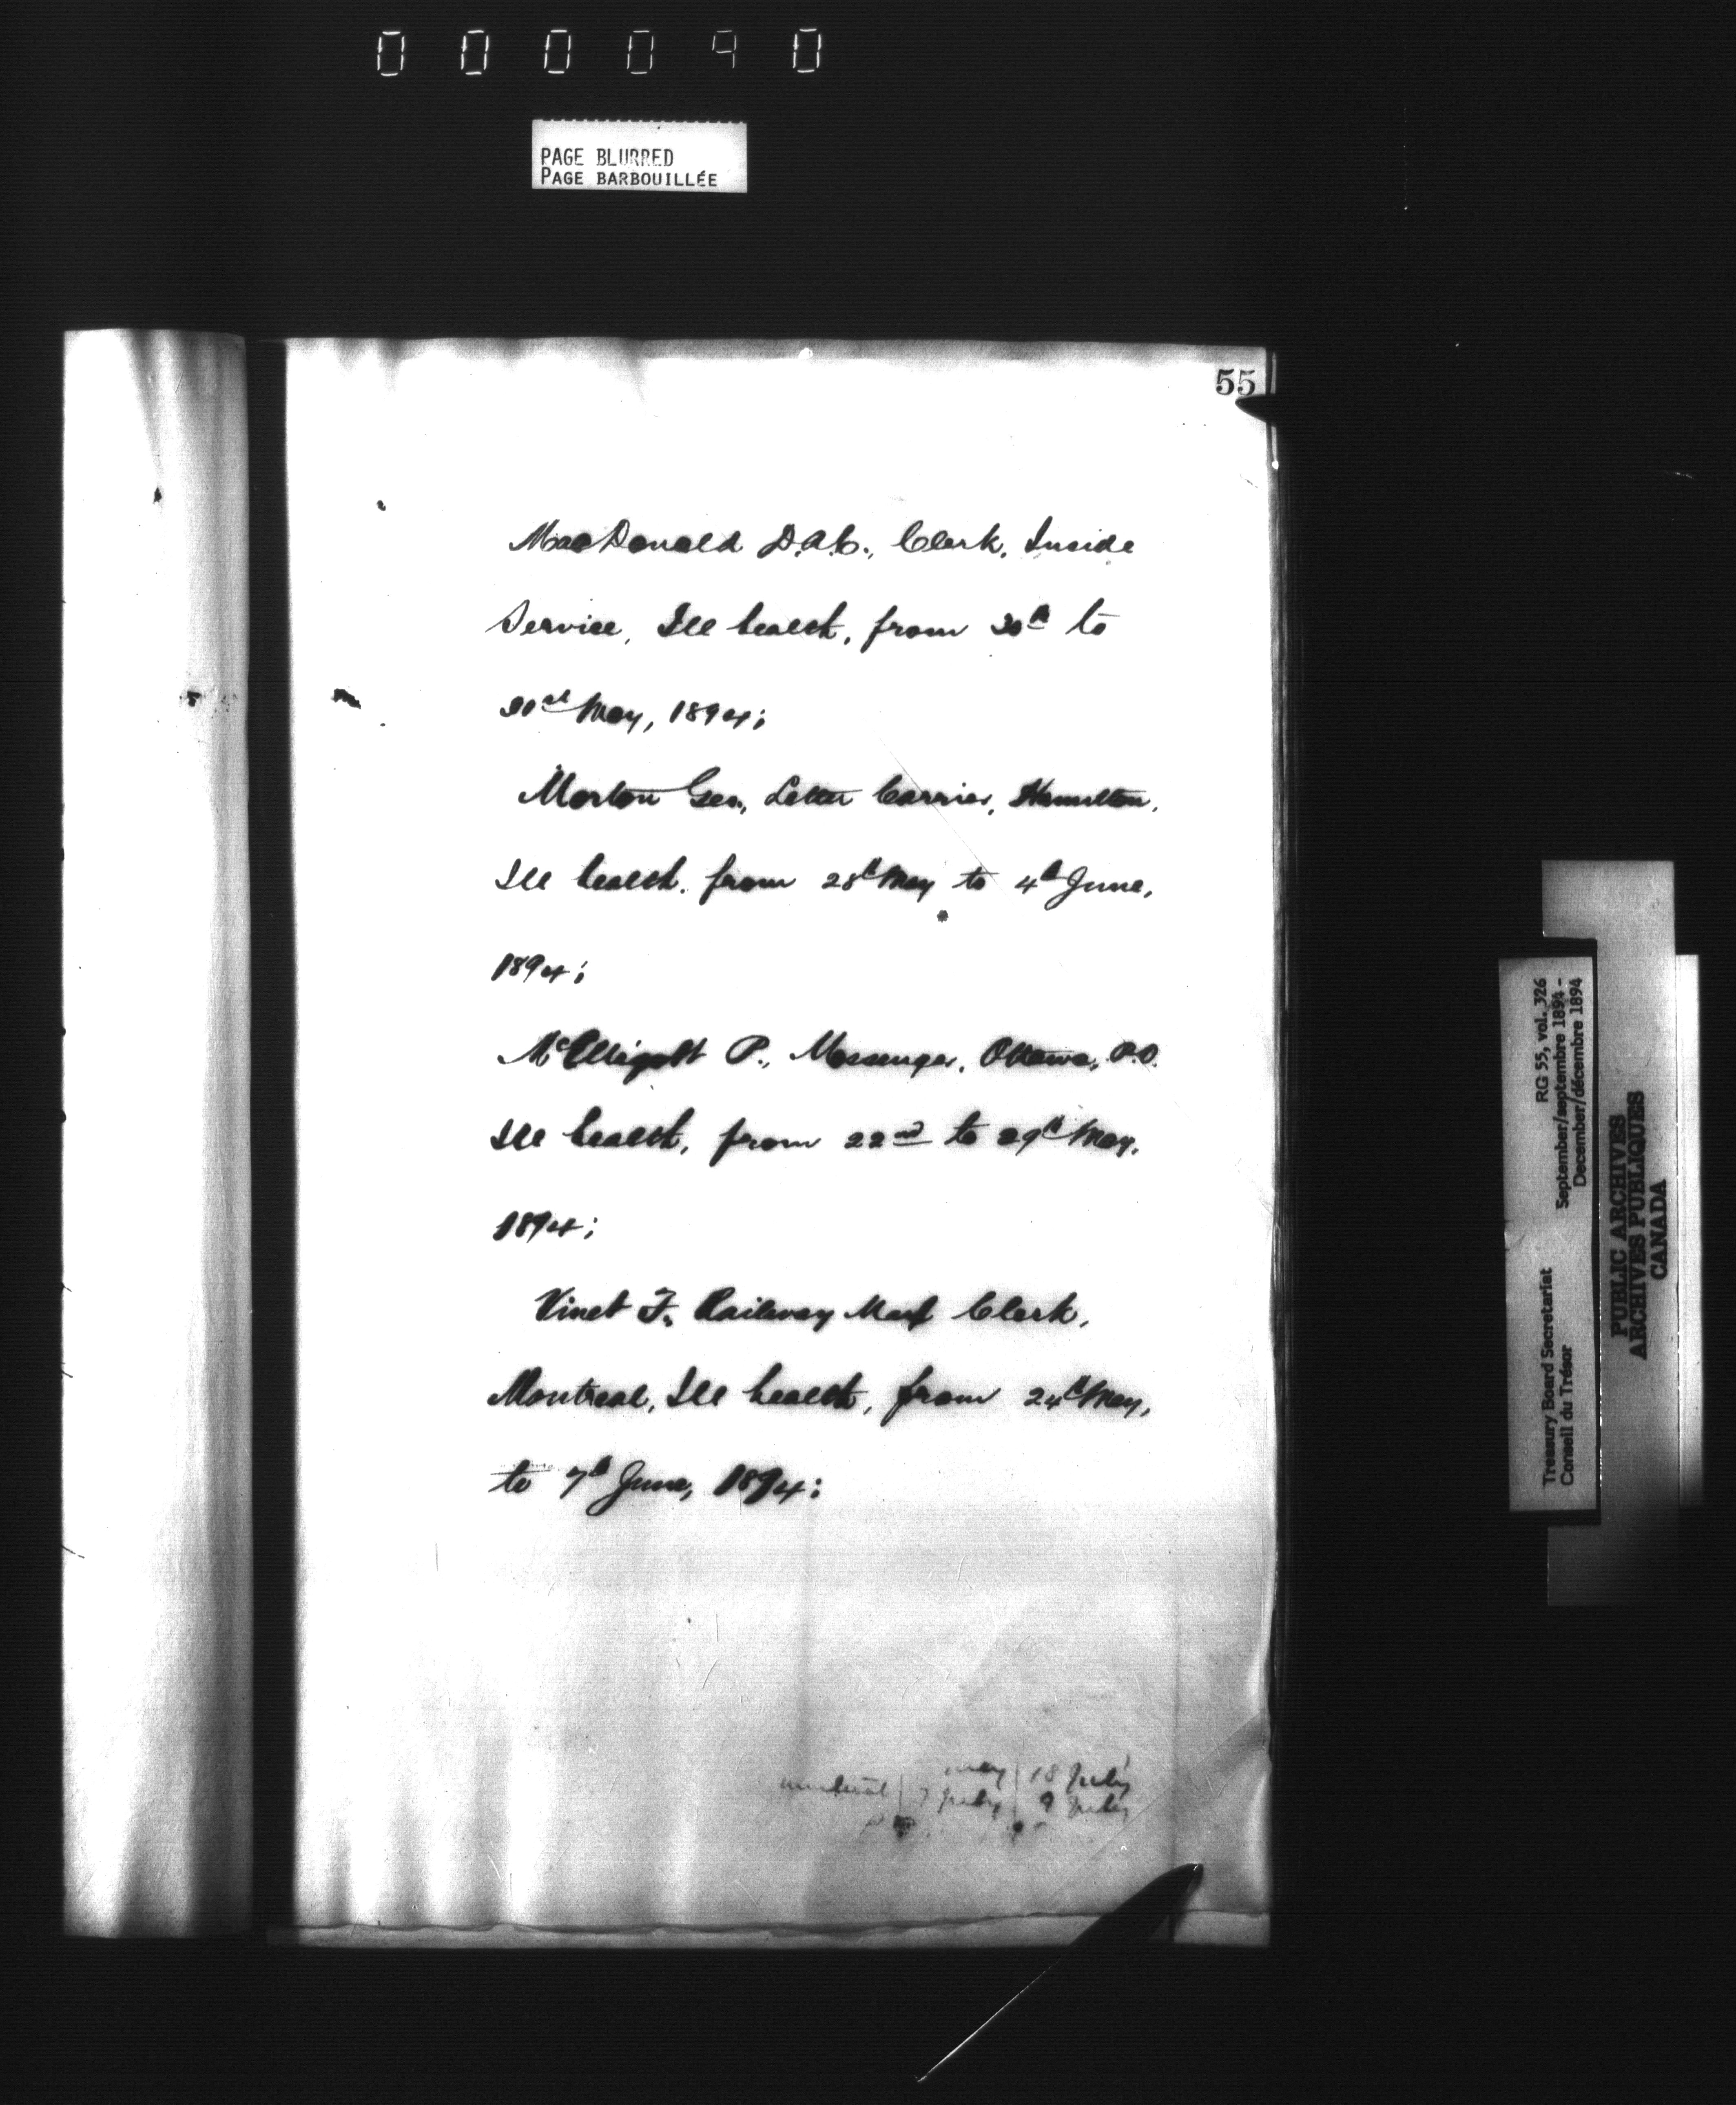 000090
PAGE BLURRED
PAGE BARBOUILLÉE
55
MacDonald D.A.C., Clerk, Inside
Service, Ill health, from 30th to
31st May, 1894;
Morton Geo., Letter Carrier, Hamilton,
Ill health, from 28th May to 4th June,
1894;
McElligott P., Messenger, Ottawa, P.O.
Ill health, from 22nd to 29th May,
1894;
Vinet F., Railway Mail Clerk,
Montreal, Ill health, from 24th May,
to 7th June, 1894;
may 18 July
7 July 9 July
Treasury Board Secretariat RG 55, vol. 326
Conseil du Trésor September/septembre 1894 -
December/décembre 1894
PUBLIC ARCHIVES
ARCHIVES PUBLIQUES
CANADA